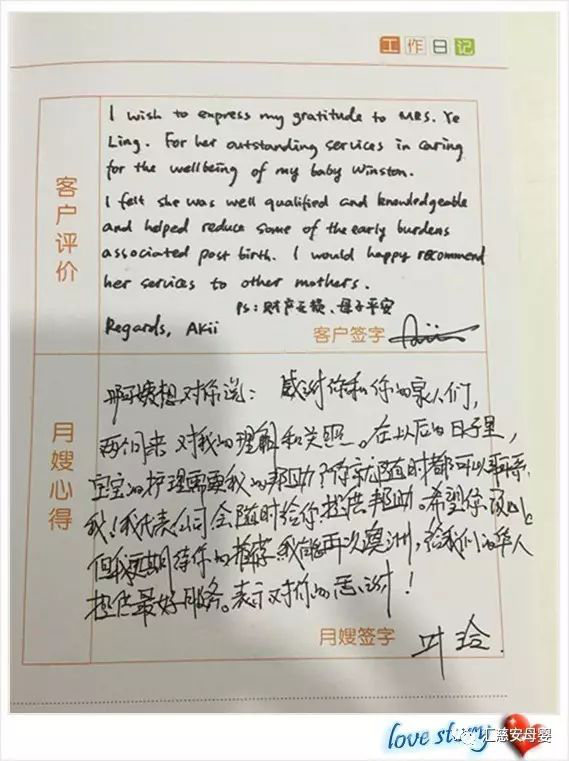 工作日记
客户评价
I wish to express my gratitude to MRS. Ye
Ling. For her outstanding services in caring
for the wellbeing of my baby Winston.
I felt she was well qualified and knowledgeable
and helped reduce some of the early burdens
associated post birth. I would happy recommend
her services to other mothers.
Ps: 财产无损、母子平安
Regards, Akii
客户签字
月嫂心得
阿姨想对你说: 感谢你和你的家人们,
两个月来对我的理解和关照。在以后的日子里,
宝宝的护理需要我的帮助
我!我代表公司会随时给你提供帮助。希望你
但我更期待你的推荐,我能再次澳洲,给我们的华人
提供最好服务。表示对你的感谢!
月嫂签字 叶玲
love story
汇慈安母婴